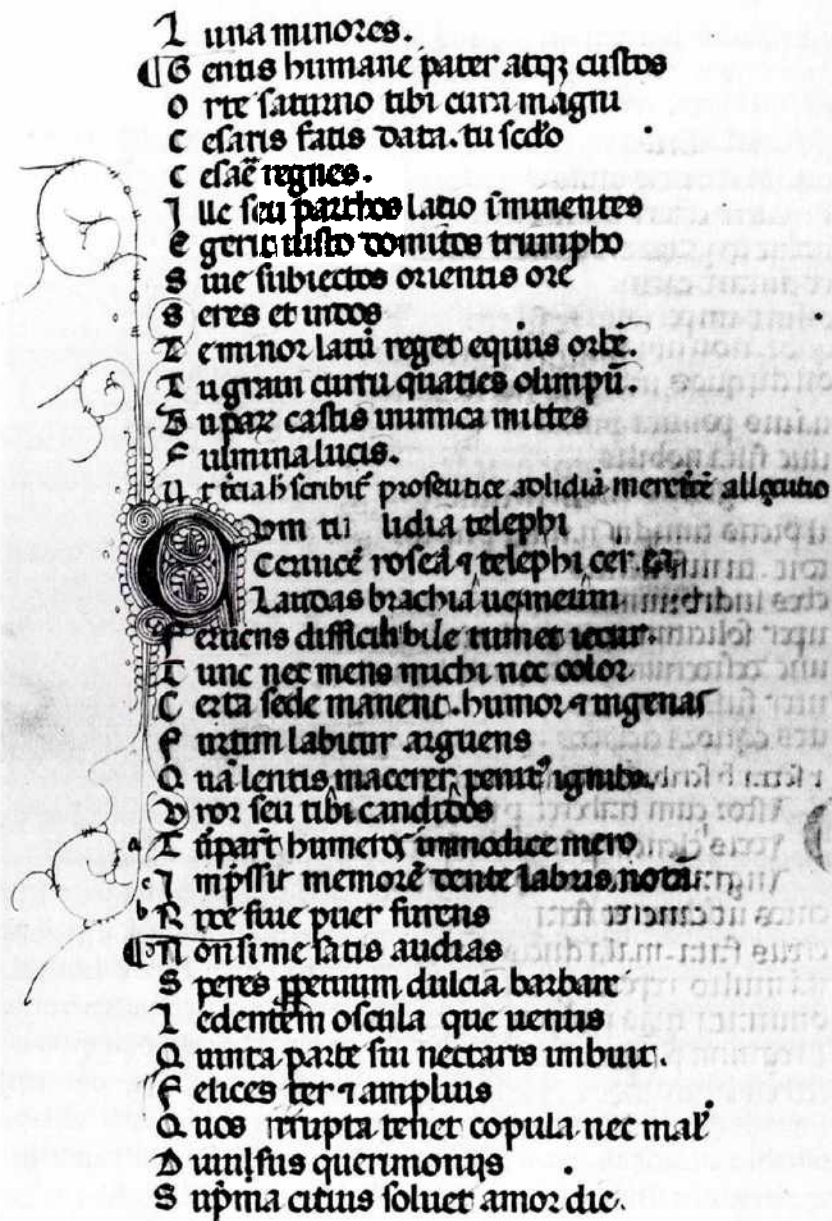 L una minores.
¶ G entis humane pater atqꝫ custos
O rte saturno tibi cura magni
C esaris fatis data. tu scd̄o
C esaē regnes.
I lle seu parthos latio īminentes
E gerit iusto domitos triumpho
S iue subiectos orientis ore
S eres et indos
T e minor latū reget equus orbē.
T u graui curru quaties olimpū.
T u par castis inimica mittes
F ulmina lucis.
lidiā
C vm tu lidia telephi
C eruicē roseā ⁊ telephi cerea
L audas brachia ue meum
F eruens difficili bile tumet iecur.
T unc nec mens michi nec color
C erta sede manent. humor ⁊ in genas
F urtim labitur arguens
Q uā lentis macerer penit᷒ ignibꝫ.
V ror seu tibi candidos
a T urpar̄t humeros īmodice mero
c I mp̄ssit memorē dente labris notā.
b R ixe siue puer furens
¶ N on si me satis audias
S peres ꝑpetuum dulcia barbare
L edentem oscula que uenus
Q uinta parte sui nectaris imbuit.
F elices ter ⁊ amplius
Q uos irrupta tenet copula nec mal᷒
D iuulsus querimoniis
S up̄ma citius soluet amor die.